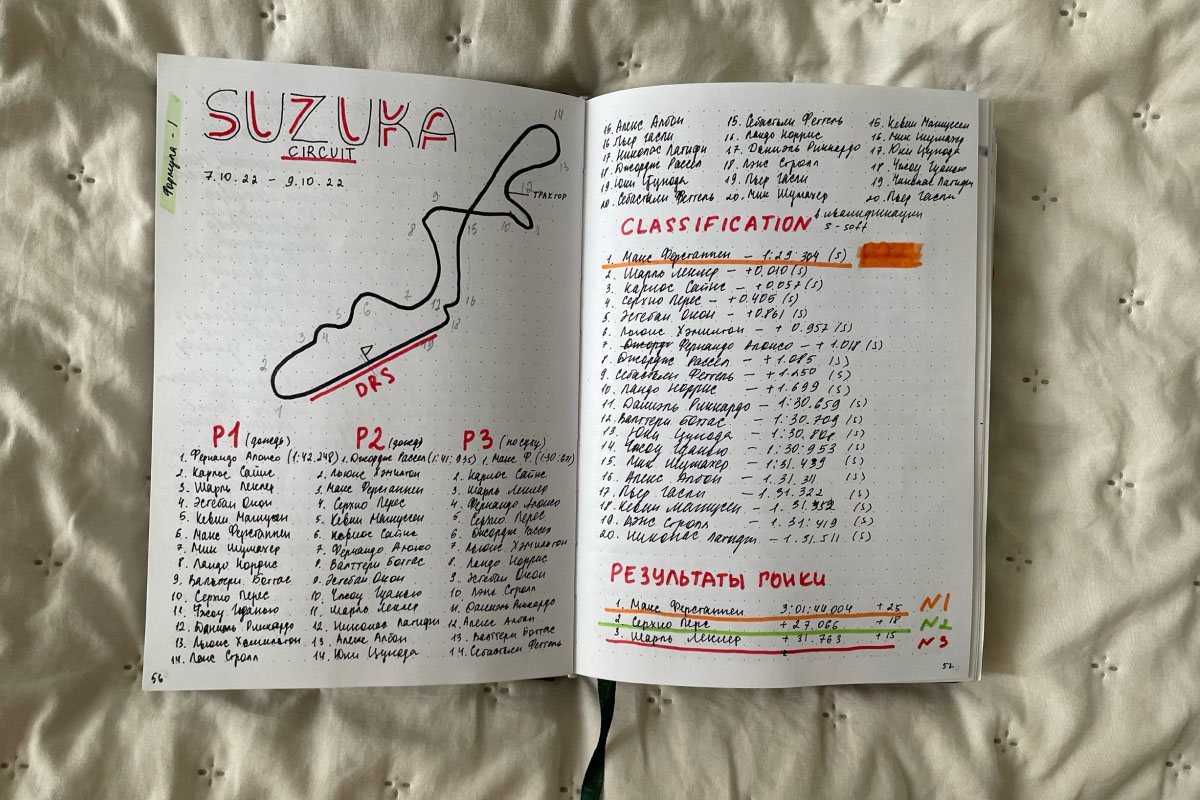 Формула - 1
SUZUKA
CIRCUIT
7.10.22 - 9.10.22
14
13
12
ТРАКТОР
11
10
9
8
15
7
6
5
4
3
2
1
16
17
18
19
DRS
P1 (дождь)
1. Фернандо Алонсо (1:42.248)
2. Карлос Сайнс
3. Шарль Леклер
4. Эстебан Окон
5. Кевин Магнуссен
6. Макс Ферстаппен
7. Мик Шумахер
8. Ландо Норрис
9. Валттери Боттас
10. Серхио Перес
11. Чжоу Гуанью
12. Даниэль Риккардо
13. Льюис Хэмильтон
14. Лэнс Стролл
P2 (дождь)
1. Джордж Рассел (1:41:935)
2. Льюис Хэмилтон
3. Макс Ферстаппен
4. Серхио Перес
5. Кевин Магнуссен
6. Карлос Сайнс
7. Фернандо Алонсо
8. Валттери Боттас
9. Эстебан Окон
10. Чжоу Гуанью
11. Шарль Леклер
12. Николас Латифи
13. Алекс Албон
14. Юки Цунода
P3 (по суху)
1. Макс Ф. (1:30:671)
2. Карлос Сайнс
3. Шарль Леклер
4. Фернандо Алонсо
5. Серхио Перес
6. Джордж Рассел
7. Льюис Хэмилтон
8. Ландо Норрис
9. Эстебан Окон
10. Лэнс Стролл
11. Даниэль Риккардо
12. Алекс Албон
13. Валттери Боттас
14. Себастьян Феттель
56
15. Алекс Албон
16. Пьер Гасли
17. Николас Латифи
18. Джордж Рассел
19. Юки Цунода
20. Себастьян Феттель
15. Себастьян Феттель
16. Ландо Норрис
17. Даниэль Риккардо
18. Лэнс Стролл
19. Пьер Гасли
20. Мик Шумахер
15. Кевин Магнуссен
16. Мик Шумахер
17. Юки Цунода
18. Чжоу Гуанью
19. Николас Латифи
20. Пьер Гасли
CLASSIFICATION в квалификации
s - soft
1. Макс Ферстаппен - 1:29:304 (s)
2. Шарль Леклер - +0.010 (s)
3. Карлос Сайнс - +0.057 (s)
4. Серхио Перес - +0.405 (s)
5. Эстебан Окон - +0.861 (s)
6. Льюис Хэмилтон - + 0.957 (s)
7. Джордж Фернандо Алонсо - + 1.018 (s)
8. Джордж Рассел - +1.085 (s)
9. Себастьян Феттель - +1.250 (s)
10. Ландо Норрис - +1.699 (s)
11. Даниэль Риккардо - 1:30.659 (s)
12. Валттери Боттас - 1:30.709 (s)
13. Юки Цунода - 1:30.808 (s)
14. Чжоу Гуанью - 1:30:953 (s)
15. Мик Шумахер - 1:31.439 (s)
16. Алекс Албон - 1:31.311 (s)
17. Пьер Гасли - 1.31.322 (s)
18. Кевин Магнуссен - 1.31.352 (s)
19. Лэнс Стролл - 1:31:419 (s)
20. Николас Латифи - 1.31.511 (s)
РЕЗУЛЬТАТЫ ГОНКИ
1. Макс Ферстаппен 3:01:44.004 +25 N1
2. Серхио Перс + 27.066 + 18 N2
3. Шарль Леклер + 31.763 +15 N3